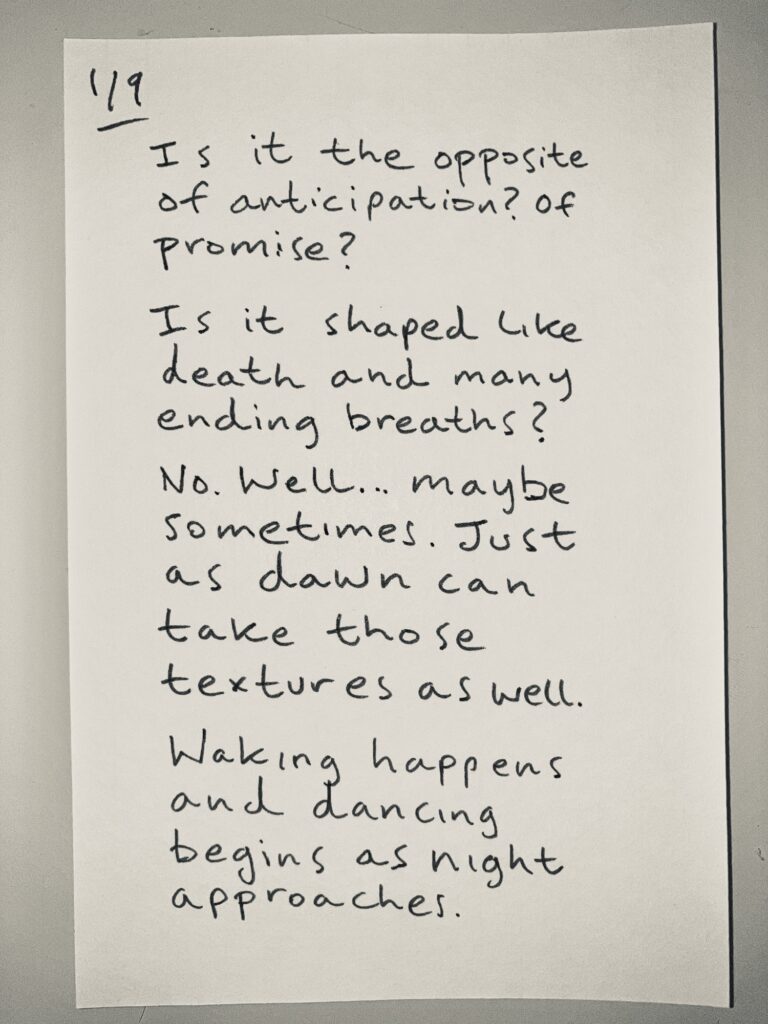 1/9
Is it the opposite
of anticipation? Of
promise?
Is it shaped like
death and many
ending breaths?
No. Well... maybe
sometimes. Just
as dawn can
take those
textures as well.
Waking happens
and dancing
begins as night
approaches.